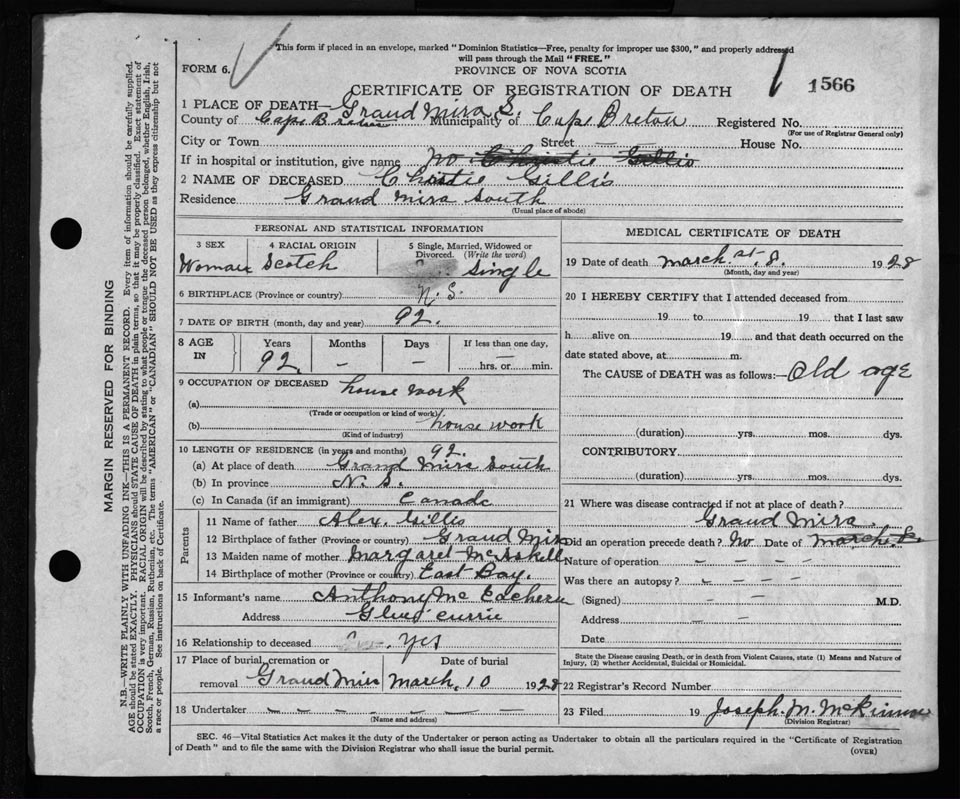 This form if placed in an envelope, marked "Dominion Statistics—Free, penalty for improper use $300," and properly addressed
will pass through the Mail "FREE."
FORM 6.
PROVINCE OF NOVA SCOTIA
1566
CERTIFICATE OF REGISTRATION OF DEATH
1 PLACE OF DEATH— Grand Mira S.
County of Cape Breton Municipality of Cape Breton Registered No.
(For use of Registrar General only)
City or Town Street — — House No.
If in hospital or institution, give name No Christie Gillis
2 NAME OF DECEASED Christie Gillis
Residence Grand Mira South
(Usual place of abode)
PERSONAL AND STATISTICAL INFORMATION
3 SEX 4 RACIAL ORIGIN 5 Single, Married, Widowed or
Divorced. (Write the word)
Woman Scotch Single
6 BIRTHPLACE (Province or country) N. S.
7 DATE OF BIRTH (month, day and year) 92.
8 AGE IN Years Months Days If less than one day,
92. — — hrs. or min.
9 OCCUPATION OF DECEASED house work
(a)
(Trade or occupation or kind of work)
(b) house work
(Kind of industry)
10 LENGTH OF RESIDENCE (in years and months) 92.
(a) At place of death Grand Mira South
(b) In province N. S.
(c) In Canada (if an immigrant) Canada
Parents
11 Name of father Alex. Gillis
12 Birthplace of father (Province or country) Grand Mira
13 Maiden name of mother Margaret
14 Birthplace of mother (Province or country) East Bay.
15 Informant's name Anthony Mc Eachern
Address
16 Relationship to deceased Yes
17 Place of burial, cremation or Date of burial
removal Grand Mira March, 10 1928
18 Undertaker — — — — —
(Name and address)
MEDICAL CERTIFICATE OF DEATH
19 Date of death March. at. 8. 1928
(Month, day and year)
20 I HEREBY CERTIFY that I attended deceased from
19 to 19 that I last saw
h alive on 19 and that death occurred on the
date stated above, at m.
The CAUSE of DEATH was as follows:— Old age
(duration) yrs. mos. dys.
CONTRIBUTORY
(duration) yrs. mos. dys.
21 Where was disease contracted if not at place of death?
Grand Mira.
Did an operation precede death? No Date of March. 8
Nature of operation — — —
Was there an autopsy? — — — —
(Signed) M.D.
Address — —
Date
State the Disease causing Death, or in death from Violent Causes, state (1) Means and Nature of
Injury, (2) whether Accidental, Suicidal or Homicidal.
22 Registrar's Record Number
23 Filed 19 Joseph. M. McKinnon
(Division Registrar)
SEC. 46—Vital Statistics Act makes it the duty of the Undertaker or person acting as Undertaker to obtain all the particulars required in the "Certificate of Registration
of Death" and to file the same with the Division Registrar who shall issue the burial permit.
(OVER)
MARGIN RESERVED FOR BINDING
N.B.—WRITE PLAINLY WITH UNFADING INK—THIS IS A PERMANENT RECORD. Every item of information should be carefully supplied.
AGE should be stated EXACTLY. PHYSICIANS should STATE CAUSE OF DEATH in plain terms, so that it may be properly classified. Exact statement of
OCCUPATION is very important. RACIAL ORIGIN will be described by stating to what people or tongue the deceased person belonged, whether English, Irish,
Scotch, French, German, Russian, Ruthenian, etc. The terms "AMERICAN" or "CANADIAN" SHOULD NOT BE USED as they express citizenship but not
a race or people. See instructions on back of Certificate.